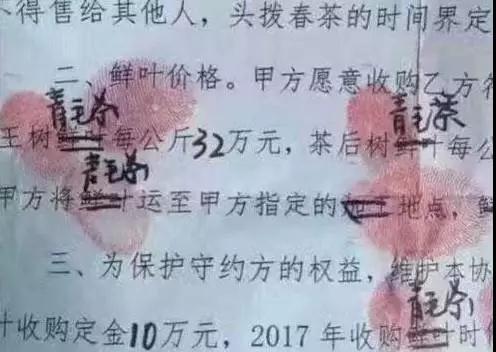 不得售给其他人，头拨春茶的时间界定
二、鲜叶价格。甲方愿意收购乙方名
青毛茶 青毛茶
王树鲜叶每公斤32万元，茶后树鲜叶每公
青毛茶
甲方将鲜叶运至甲方指定的 地点，鲜
三、为保护守约方的权益，维护本协
青毛茶
叶收购定金10万元，2017年收购鲜叶时